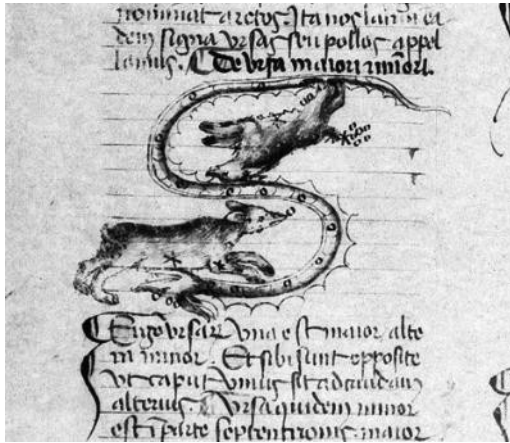 nominat arctos. Ita nos latini ea
dem signa ursas seu pollos appel
lamus. De ursa maiori et minori.
Ergo ursarum una est maior alte
ra minor. Et sibi sunt opposite
ut caput unius sit ad caudam
alterius. Ursa quidem minor
est in parte septentrionis maior